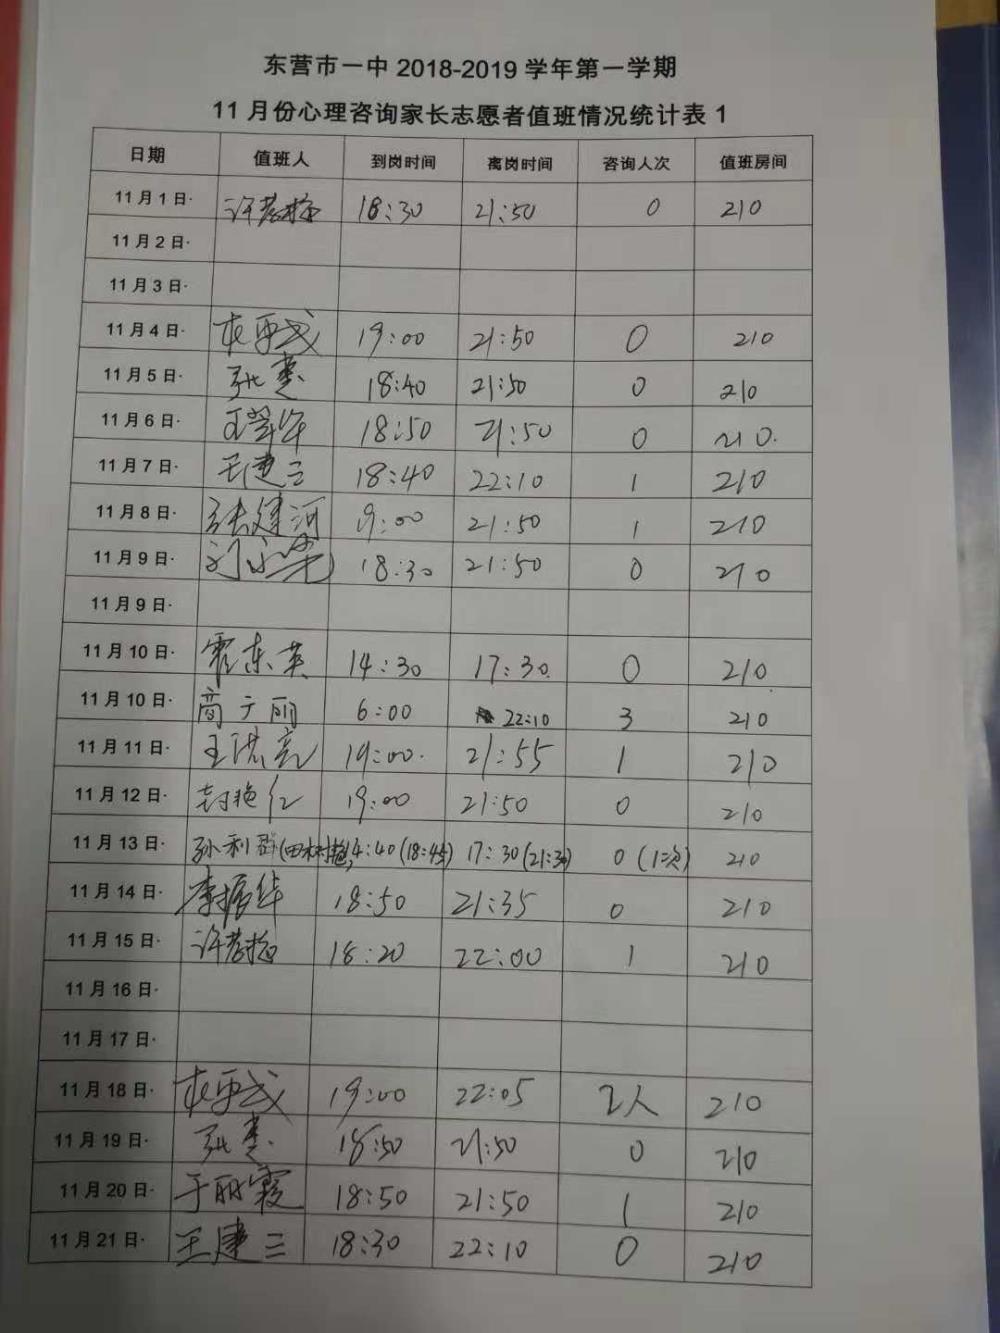 东营市一中 2018-2019 学年第一学期
11 月份心理咨询家长志愿者值班情况统计表 1
日期 值班人 到岗时间 离岗时间 咨询人次 值班房间
11 月 1 日· 18:30 21:50 0 210
11 月 2 日·
11 月 3 日·
11 月 4 日· 19:00 21:50 0 210
11 月 5 日· 18:40 21:50 0 210
11 月 6 日· 18:50 21:50 0 210.
11 月 7 日· 王建三 18:40 22:10 1 210
11 月 8 日· 张建河 19:00 21:50 1 210
11 月 9 日· 18:30 21:50 0 210
11 月 9 日·
11 月 10 日· 霍东英 14:30 17:30. 0 210
11 月 10 日· 商广丽 6:00 22:10 3 210
11 月 11 日· 王洪亮 19:00. 21:55 1 210
11 月 12 日· 封艳红 19:00 21:50 0 210
11 月 13 日· 孙利群 14:40 (18:45) 17:30 (21:30) 0 (1次) 210
11 月 14 日· 李振华 18:50 21:35 0 210
11 月 15 日· 18:20 22:00 1 210
11 月 16 日·
11 月 17 日·
11 月 18 日· 19:00 22:05 2人 210
11 月 19 日· 18:50 21:50 0 210
11 月 20 日· 于丽霞 18:50 21:50 1 210
11 月 21 日· 王建三 18:30 22:10 0 210